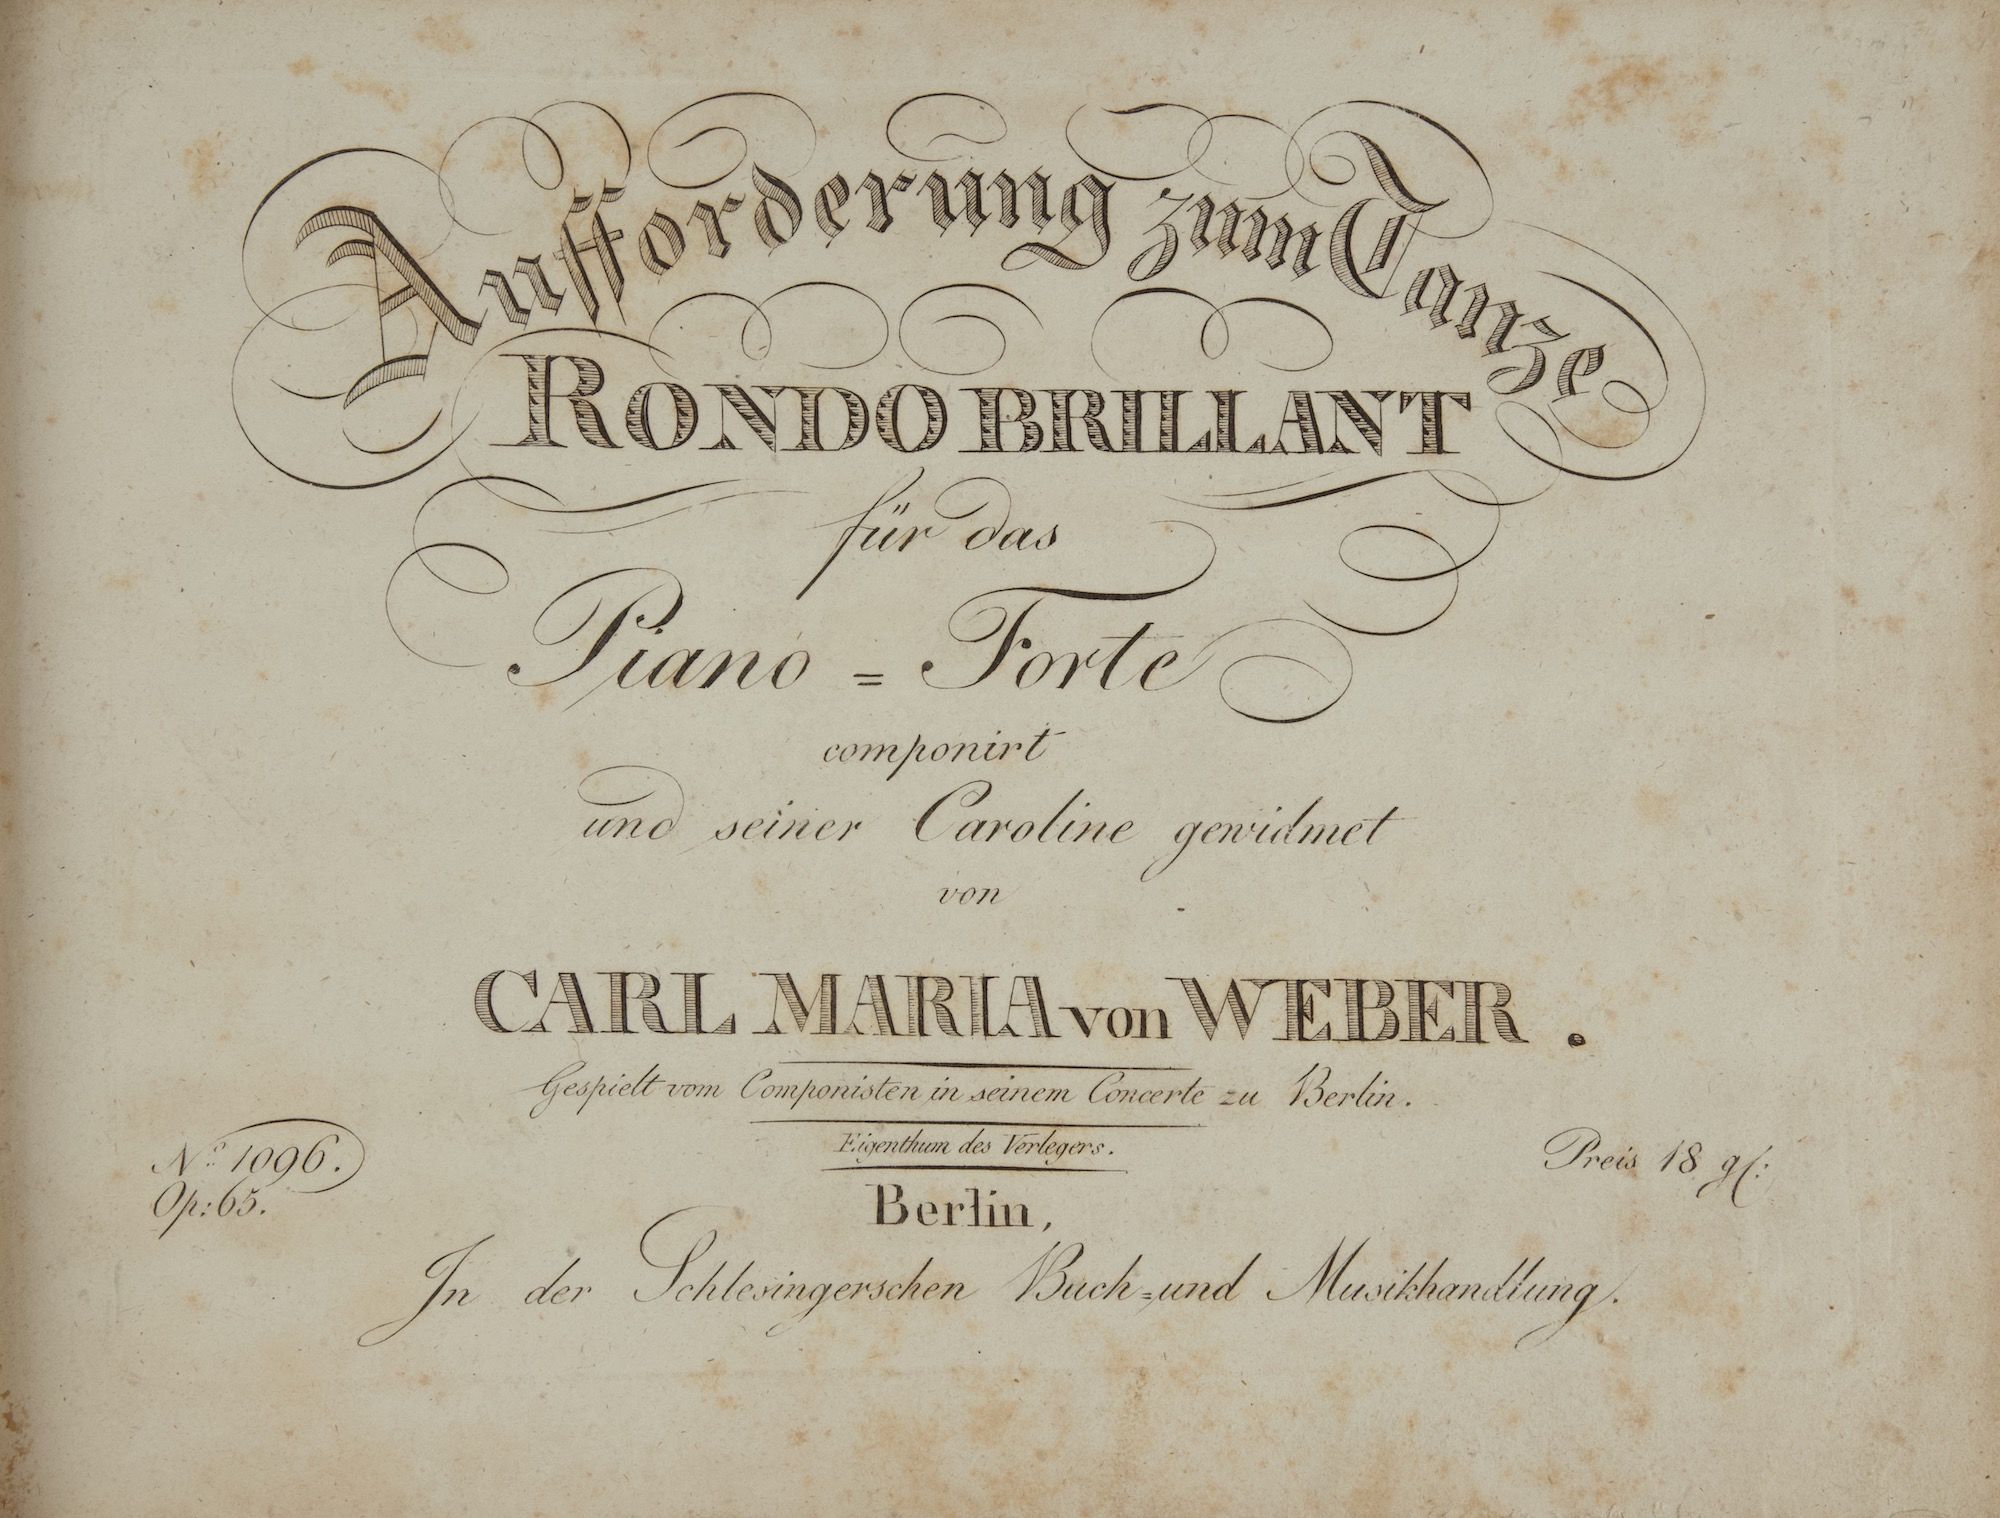 Aufforderung zum Tanze
RONDO BRILLANT
für das
Piano = Forte
componirt
und seiner Caroline gewidmet
von
CARL MARIA von WEBER.
Gespielt vom Componisten in seinem Concerte zu Berlin.
Eigenthum des Verlegers.
No. 1096.
Op: 65.
Preis 18 gl:
Berlin,
In der Schlesingerschen Buch = und Musikhandlung.